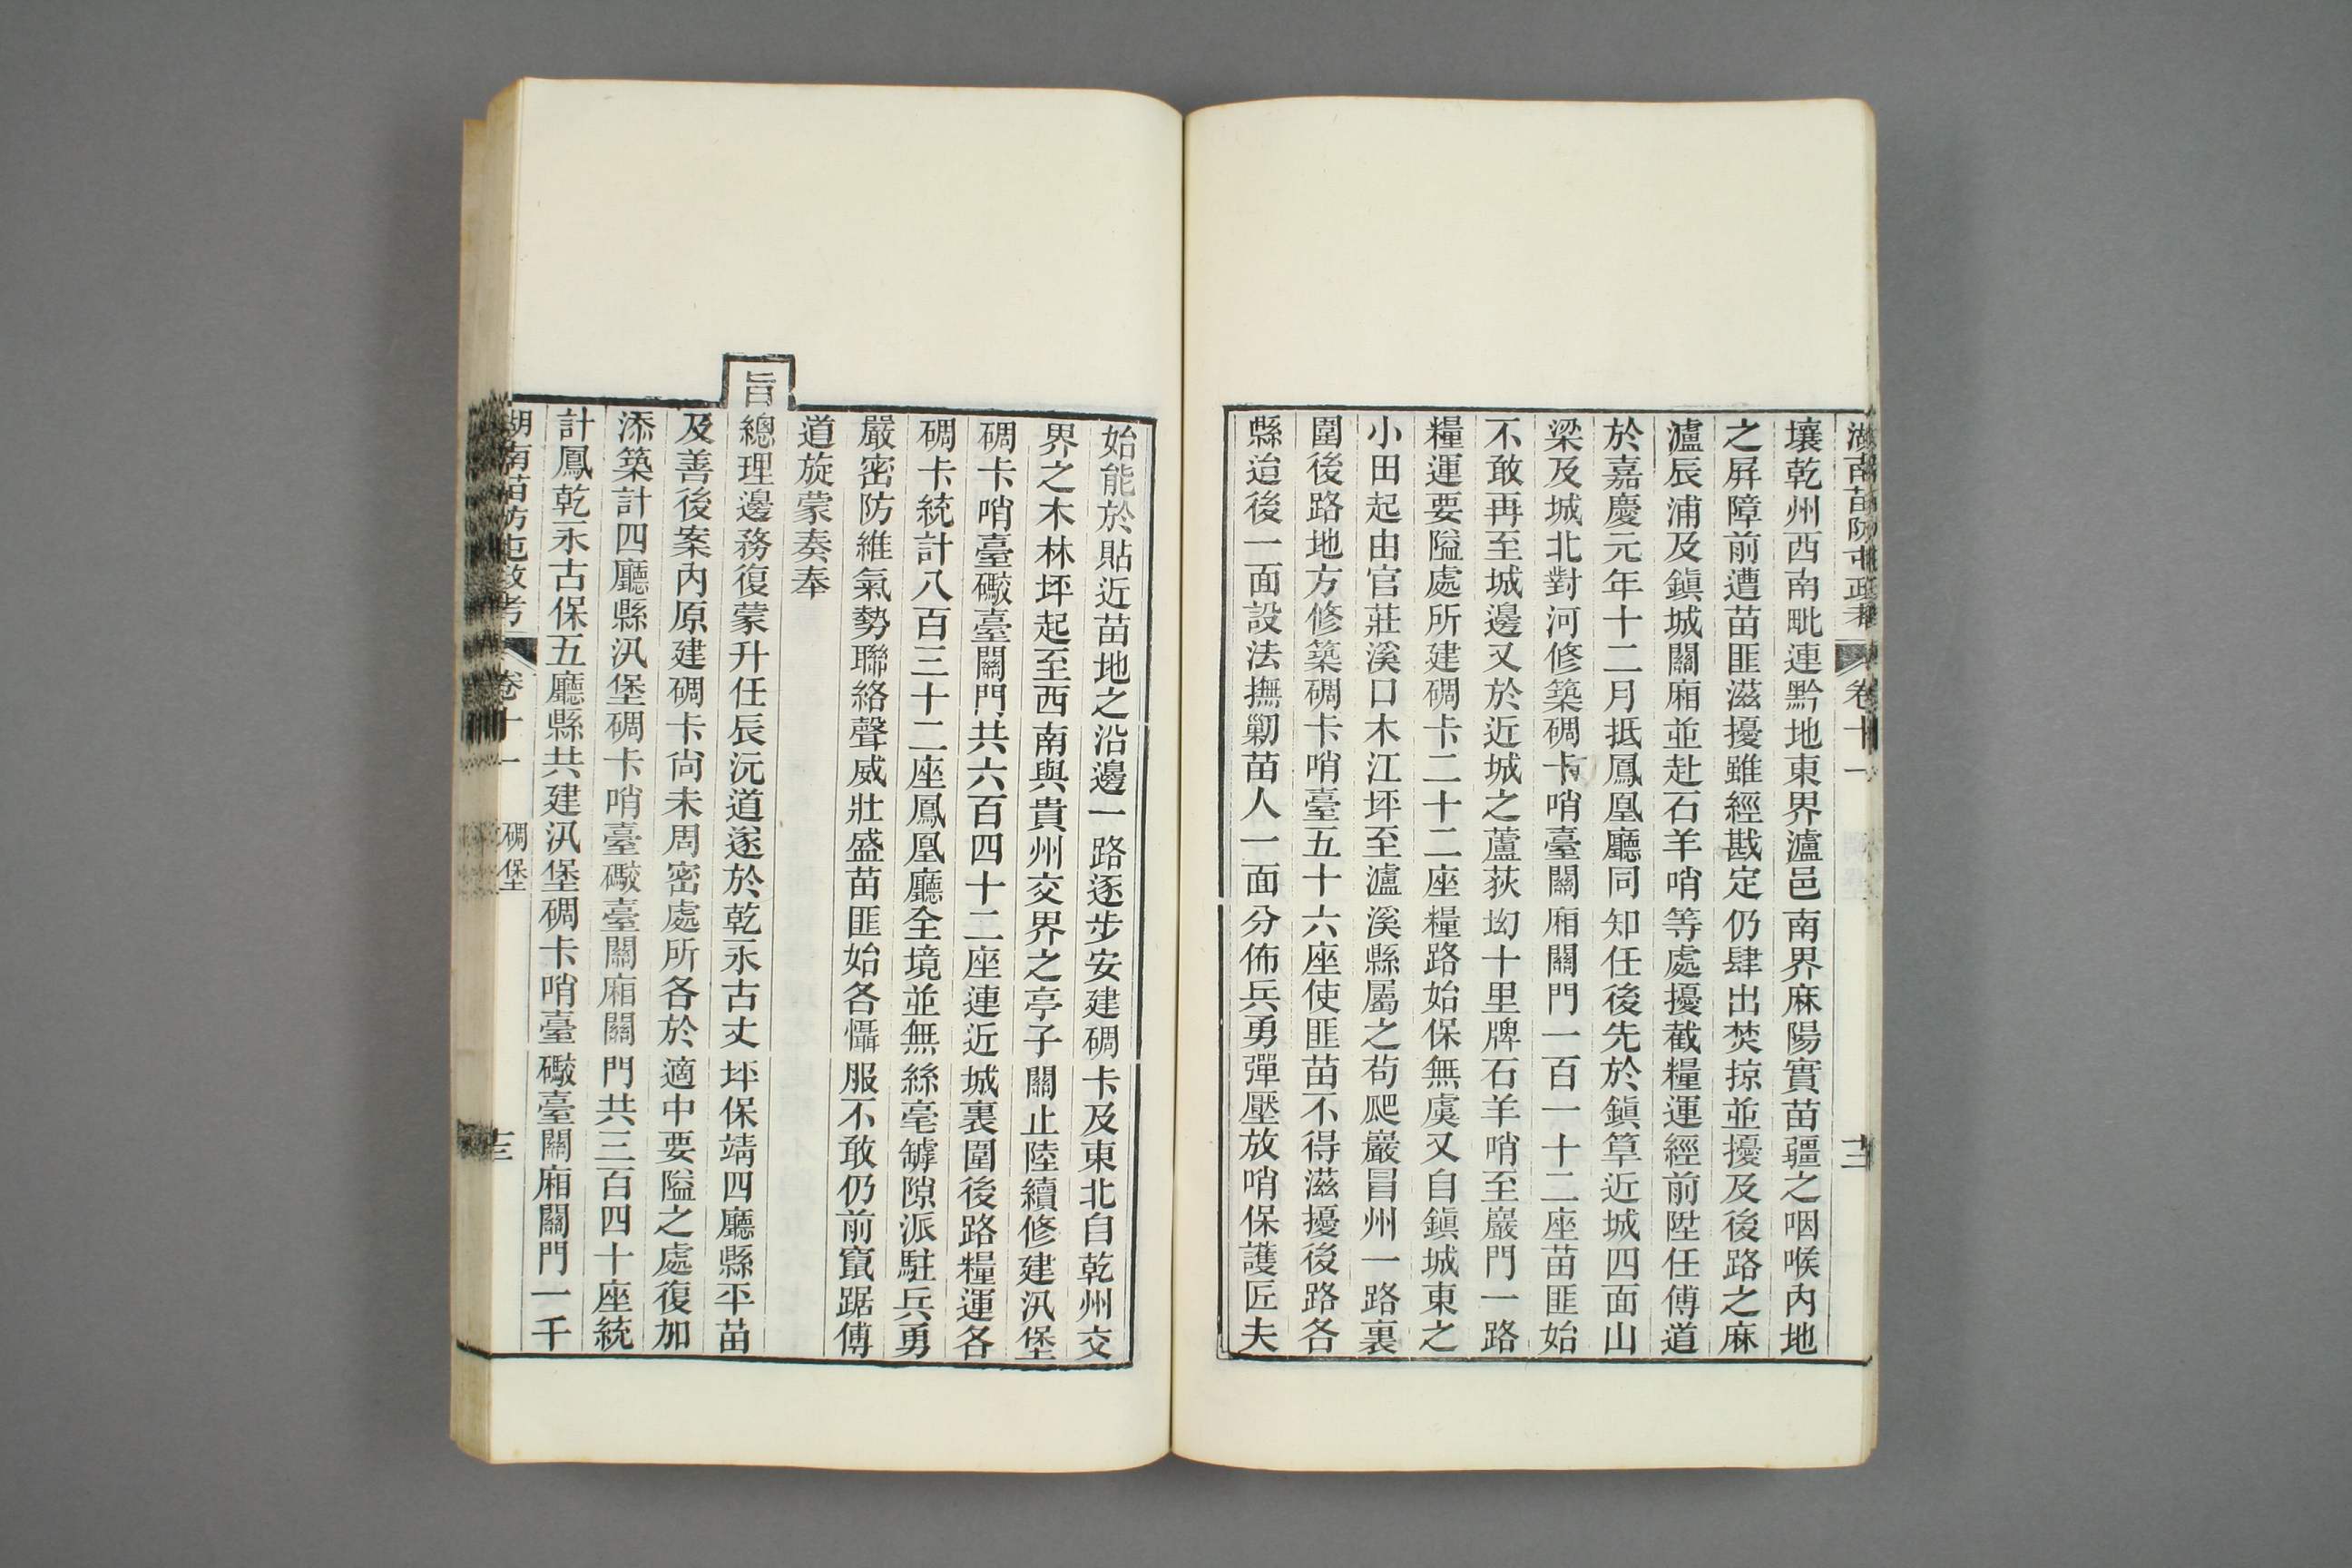 湖南苗防屯政考 卷十一 十二
壤乾州西南毗連黔地東界瀘邑南界麻陽實苗疆之咽喉內地
之屏障前遭苗匪滋擾雖經戡定仍肆出焚掠並擾及後路之麻
瀘辰浦及鎮城關廂並赴石羊哨等處擾截糧運經前陞任傅道
於嘉慶元年十二月抵鳳凰廳同知任後先於鎮筸近城四面山
梁及城北對河修築碉卡哨臺關廂關門一百一十二座苗匪始
不敢再至城邊又於近城之蘆荻坳十里牌石羊哨至巖門一路
糧運要隘處所建碉卡二十二座糧路始保無虞又自鎮城東之
小田起由官莊溪口木江坪至瀘溪縣屬之茍爬巖冒州一路裏
圍後路地方修築碉卡哨臺五十六座使匪苗不得滋擾後路各
縣迨後一面設法撫剿苗人一面分佈兵勇彈壓放哨保護匠夫
始能於貼近苗地之沿邊一路逐步安建碉卡及東北自乾州交
界之木林坪起至西南與貴州交界之亭子關止陸續修建汛堡
碉卡哨臺礮臺關門共六百四十二座連近城裏圍後路糧運各
碉卡統計八百三十二座鳳凰廳全境並無絲毫罅隙派駐兵勇
嚴密防維氣勢聯絡聲威壯盛苗匪始各懾服不敢仍前竄踞傅
道旋蒙奏奉
旨總理邊務復蒙升任辰沅道遂於乾永古丈坪保靖四廳縣平苗
及善後案內原建碉卡尚未周密處所各於適中要隘之處復加
添築計四廳縣汛堡碉卡哨臺礮臺關廂關門共三百四十座統
計鳳乾永古保五廳縣共建汛堡碉卡哨臺礮臺關廂關門一千
湖南苗防屯政考 卷十一 碉堡 十三